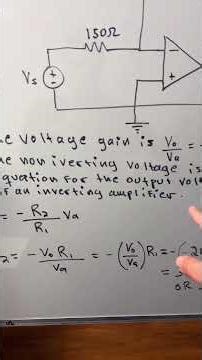 150Ω
Vs
-
+
voltage gain is Vo/Va =
non iverting voltage is
equation for the output
an inverting amplifier.
= - R2/R1 Va
= -Vo R1/Va = -(Vo/Va) R1 = -(-20
=
OR